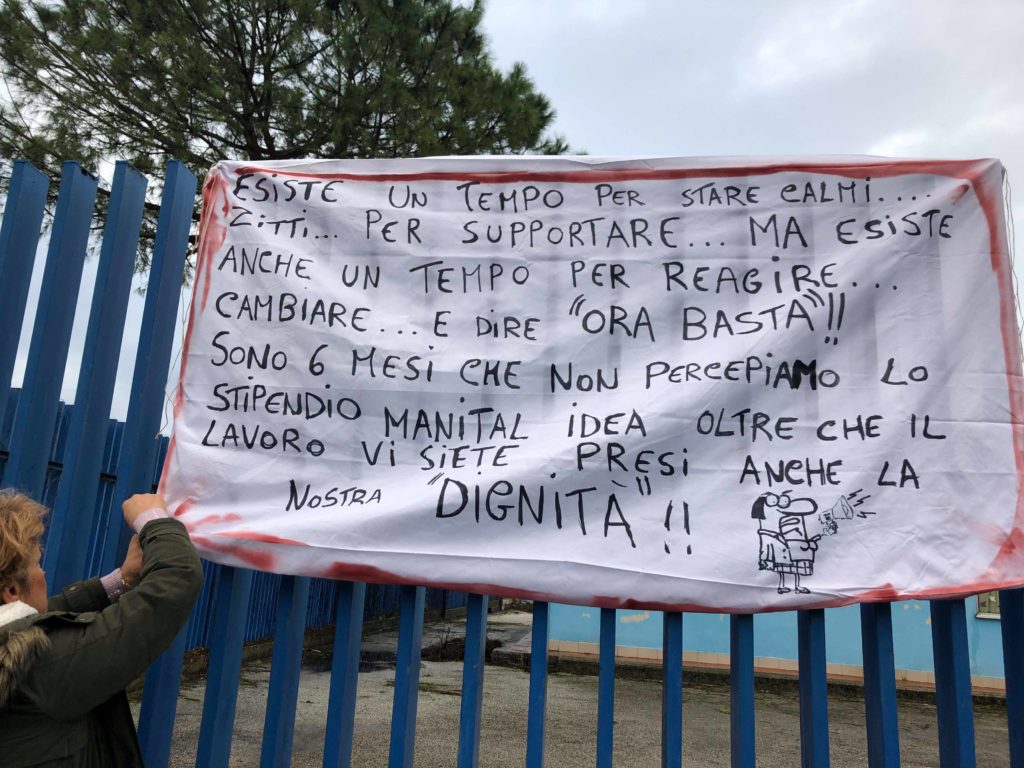 ESISTE UN TEMPO PER STARE CALMI....
ZITTI... PER SUPPORTARE... MA ESISTE
ANCHE UN TEMPO PER REAGIRE...
CAMBIARE... E DIRE "ORA BASTA"!!
SONO 6 MESI CHE NON PERCEPIAMO LO
STIPENDIO MANITAL IDEA OLTRE CHE IL
LAVORO VI SIETE PRESI ANCHE LA
NOSTRA "DIGNITÀ"!!